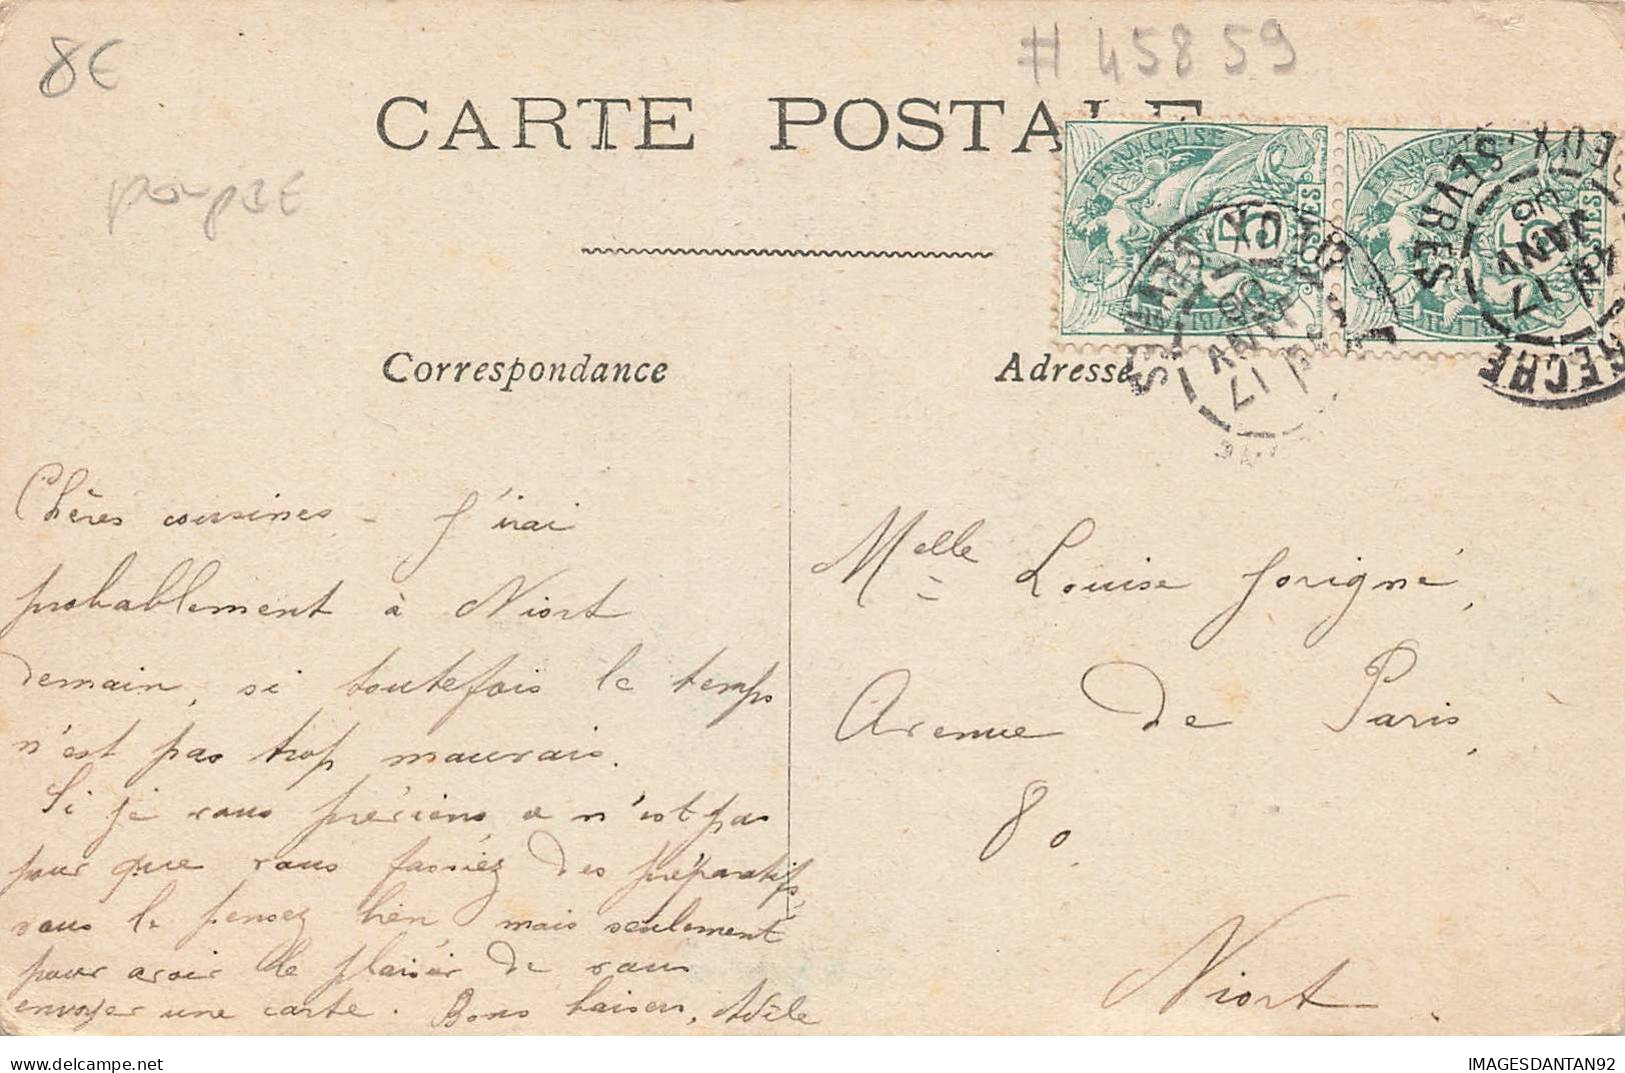 8€
# 45859
CARTE POSTALE
FRANÇAISE
POSTES
5
FRANÇAISE
POSTES
5
17
JANV
06
SEVRES
17
JANV
06
Correspondance
Adresse
Chères cousines - J'irai
probablement à Niort
demain, si toutefois le temps
n'est pas trop mauvais.
Si je vous préviens, ce n'est pas
pour que vous fassiez des préparatifs,
vous le pensez bien mais seulement
pour avoir le plaisir de vous
envoyer une carte. Bons baisers, Adèle
Melle Louise Jorigné,
Avenue de Paris,
80.
Niort.
IMAGESDANTAN92